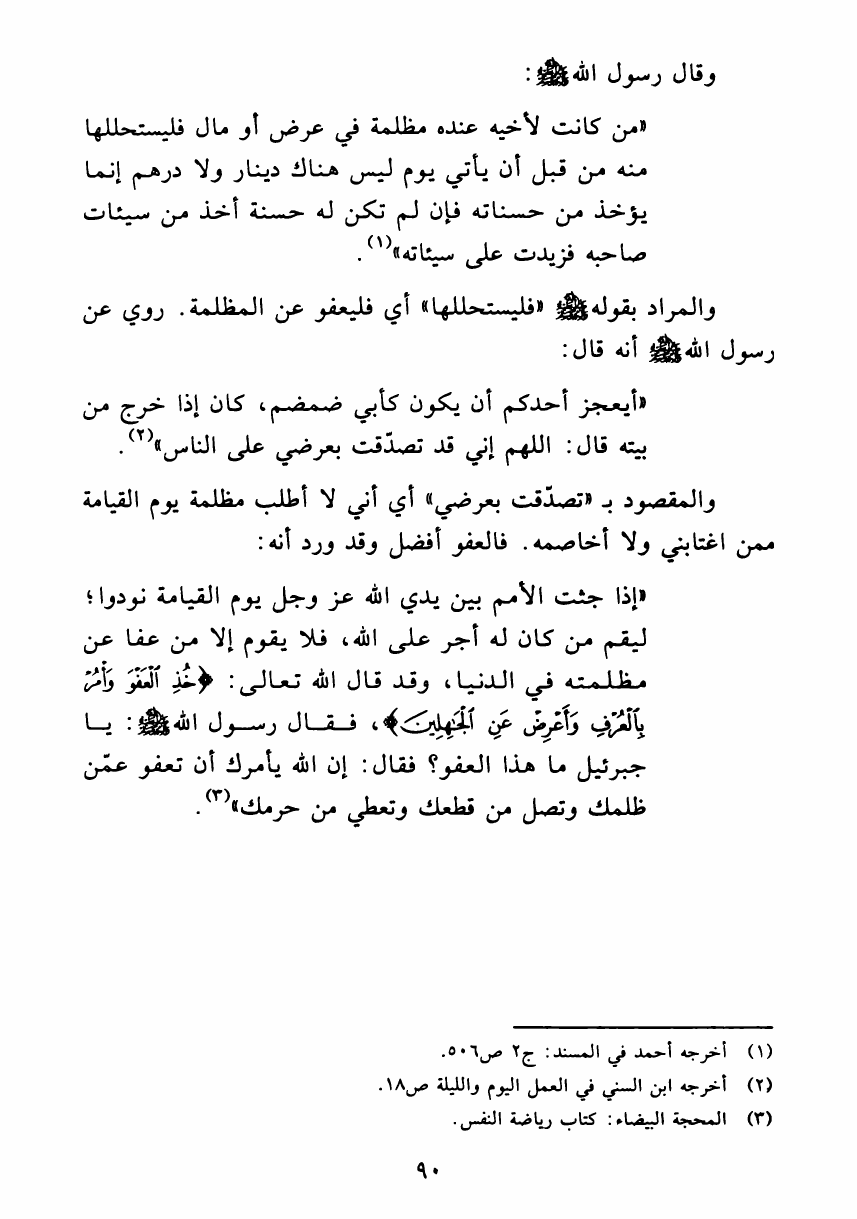 وقال رسول الله ﷺ:
«من كانت لأخيه عنده مظلمة في عرض أو مال فليستحللها
منه من قبل أن يأتي يوم ليس هناك دينار ولا درهم إنما
يؤخذ من حسناته فإن لم تكن له حسنة أخذ من سيئات
صاحبه فزيدت على سيئاته»(١).
والمراد بقوله ﷺ «فليستحللها» أي فليعفو عن المظلمة. روي عن
رسول الله ﷺ أنه قال:
«أيعجز أحدكم أن يكون كأبي ضمضم، كان إذا خرج من
بيته قال: اللهم إني قد تصدّقت بعرضي على الناس»(٢).
والمقصود بـ «تصدّقت بعرضي» أي أني لا أطلب مظلمة يوم القيامة
ممن اغتابني ولا أخاصمه. فالعفو أفضل وقد ورد أنه:
«إذا جثت الأمم بين يدي الله عز وجل يوم القيامة نودوا؛
ليقم من كان له أجر على الله، فلا يقوم إلا من عفا عن
مظلمته في الدنيا، وقد قال الله تعالى: ﴿خُذِ ٱلْعَفْوَ وَأْمُرْ
بِٱلْعُرْفِ وَأَعْرِضْ عَنِ ٱلْجَٰهِلِينَ﴾، فقال رسول الله ﷺ: يا
جبرئيل ما هذا العفو؟ فقال: إن الله يأمرك أن تعفو عمّن
ظلمك وتصل من قطعك وتعطي من حرمك»(٣).
(١) أخرجه أحمد في المسند: ج٢ ص٥٠٦.
(٢) أخرجه ابن السني في العمل اليوم والليلة ص١٨.
(٣) المحجة البيضاء: كتاب رياضة النفس.
٩٠